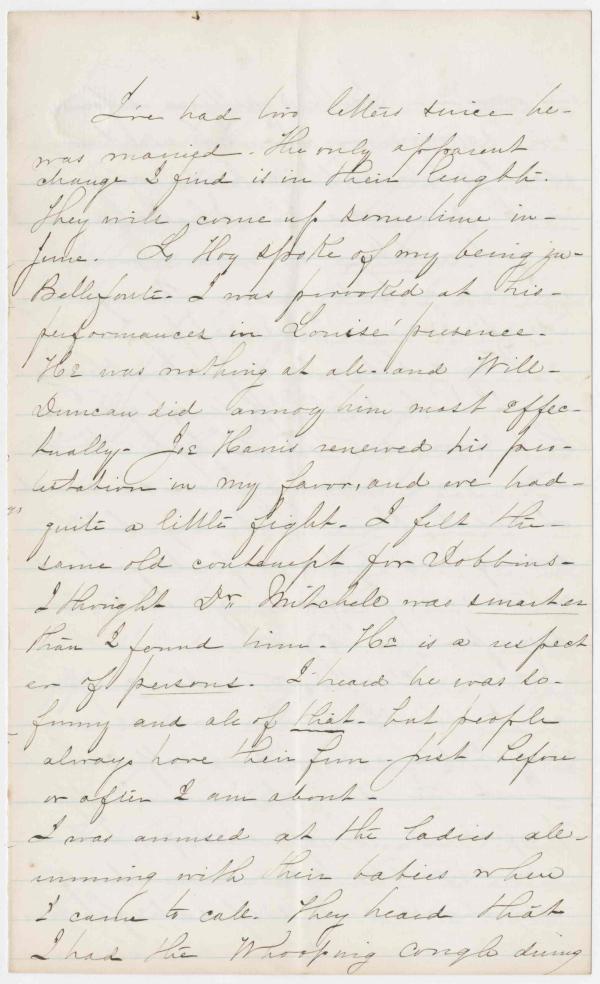 I've had two letters since he-
was married. The only apparent
change I find is in their lenghth.
They will come up sometime in-
June. Lo Hoy spoke of my being in-
Bellefonte. I was provoked at his-
performances in Louise' presence.
He was nothing at all. and Will-
Duncan did annoy him most effec-
tually- Joe Harris renewed his pro-
testation in my favor, and we had-
quite a little fight. I felt the-
same old contempt for Dobbins-
I thought Dr. Mitchell was smarter
than I found him. He is a respect
er of persons. I heard he was so-
funny and all of that- but people
always have their fun just before
or after I am about-
I was amused at the ladies all-
running with their babies when
I came to call. They heard that
I had the Whooping cough during